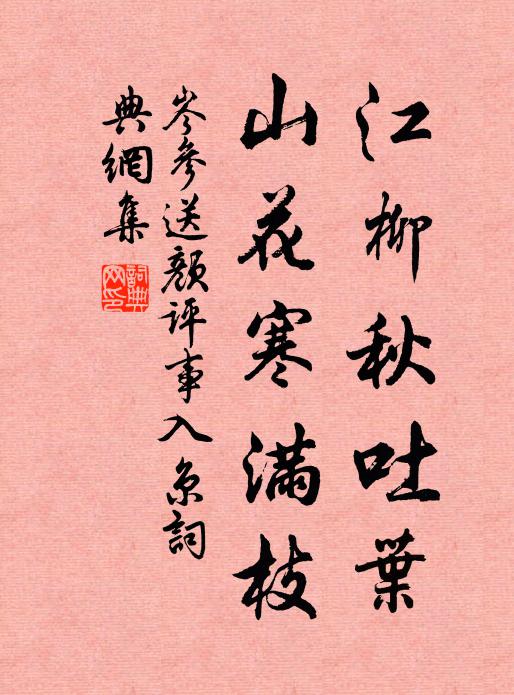 江柳秋吐葉
山花寒滿枝
岑參送顏評事入京詞
典網集
詞典網印